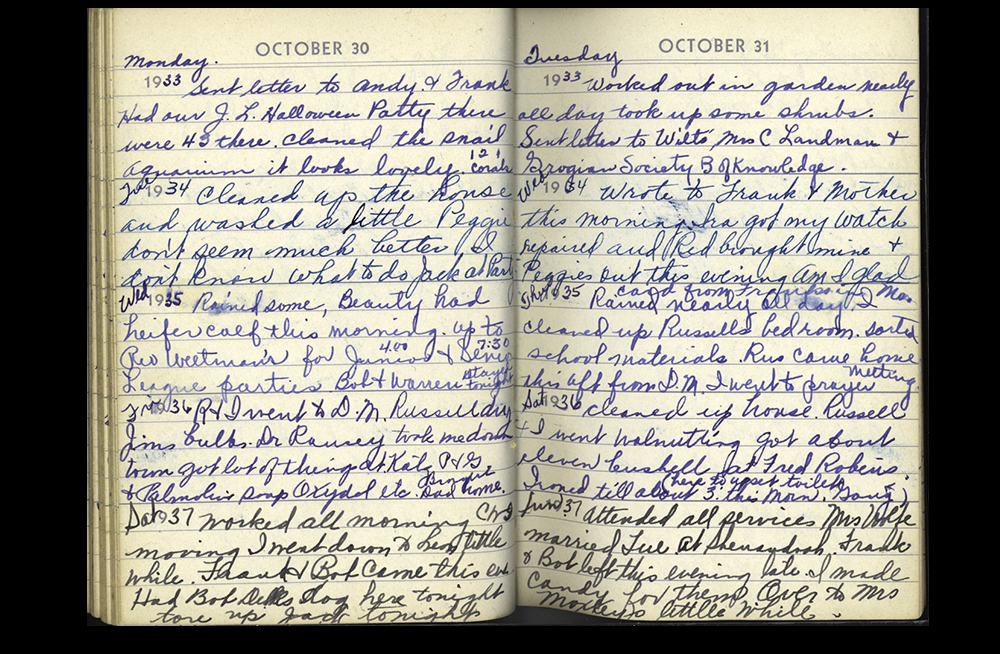 OCTOBER 30
Monday.
1933 Sent letter to Andy & Frank
Had our J. L. Halloween Party there
were 43 there. Cleaned the snail
aquarium it looks lovely. 12
Tue 1934 Cleaned up the house
and washed a little Peggie
don't seem much better & I
don't know what to do Jack at Party
Wed 1935 Rained some, Beauty had
heifer calf this morning. Up to
Rev Weetman's for Junior & Senior
4:00 7:30
League parties Bob & Warren stayed
tonight
Fri 1936 R & I went to D. M. Russell
Jims bulbs. Dr Ramsey took me down
town got lot of things at Katz P & G
& Palmolive soap Oxydol etc. Dad
home.
Sat 1937 Worked all morning
moving I went down to little
while. Frank & Bob came this eve
Had Bob dog here tonight
tore up Jack tonight
OCTOBER 31
Tuesday
1933 Worked out in garden nearly
all day took up some shrubs.
Sent letter to Wilts, Mrs C Landman &
Grogian Society B of Knowledge.
Wed 1934 Wrote to Frank & Mother
this morning. Ira got my watch
repaired and Red brought mine &
Peggies out this evening am I glad
card from
Thur 1935 Rained nearly all day. I
cleaned up Russells bedroom. Sorted
school materials. Rus came home
this aft from D. M. I went to prayer
meeting.
Sat 1936 cleaned up house. Russell
& I went walnutting got about
eleven bushell at Fred Robins
(here to upset toilet
Ironed till about 3 this morn.
Sun 1937 Attended all services Mrs Wolfe
married Tue at Shenandoah. Frank
& Bob left this evening late. I made
candy for them. Over to Mrs
Moxley's little while.